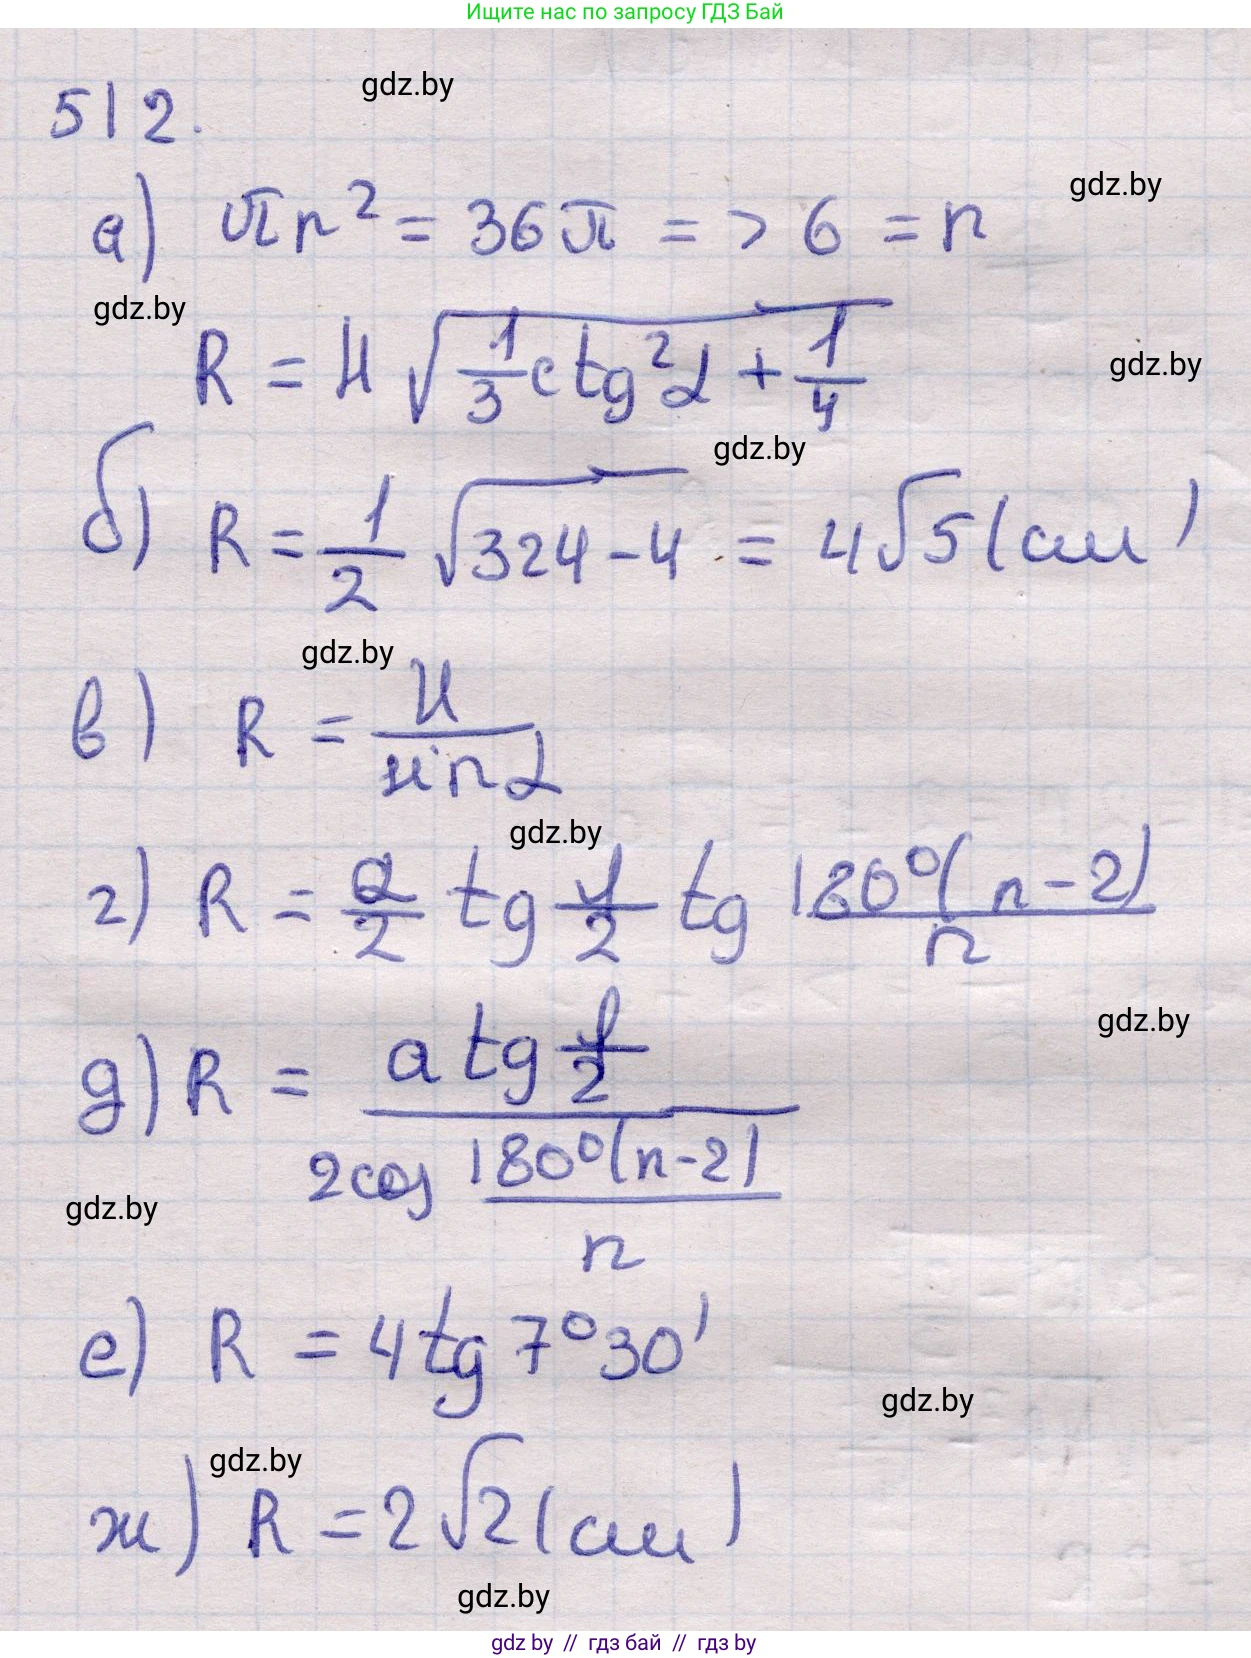 Ищите нас по запросу ГДЗ Бай
gdz.by
512.
gdz.by
а) πr² = 36π => 6 = r
gdz.by
R = H √(1/3 ctg²α + 1/4)
gdz.by
gdz.by
б) R = 1/2 √(324-4) = 4√5 (см)
gdz.by
в) R = H / sin α
gdz.by
г) R = a/2 tg φ/2 tg 180°(n-2)/n
gdz.by
д) R = a tg φ/2 / 2cos 180°(n-2)/n
gdz.by
е) R = 4 tg 7°30'
gdz.by
gdz.by
ж) R = 2√2 (см)
gdz.by
gdz by // гдз бай // гдз by